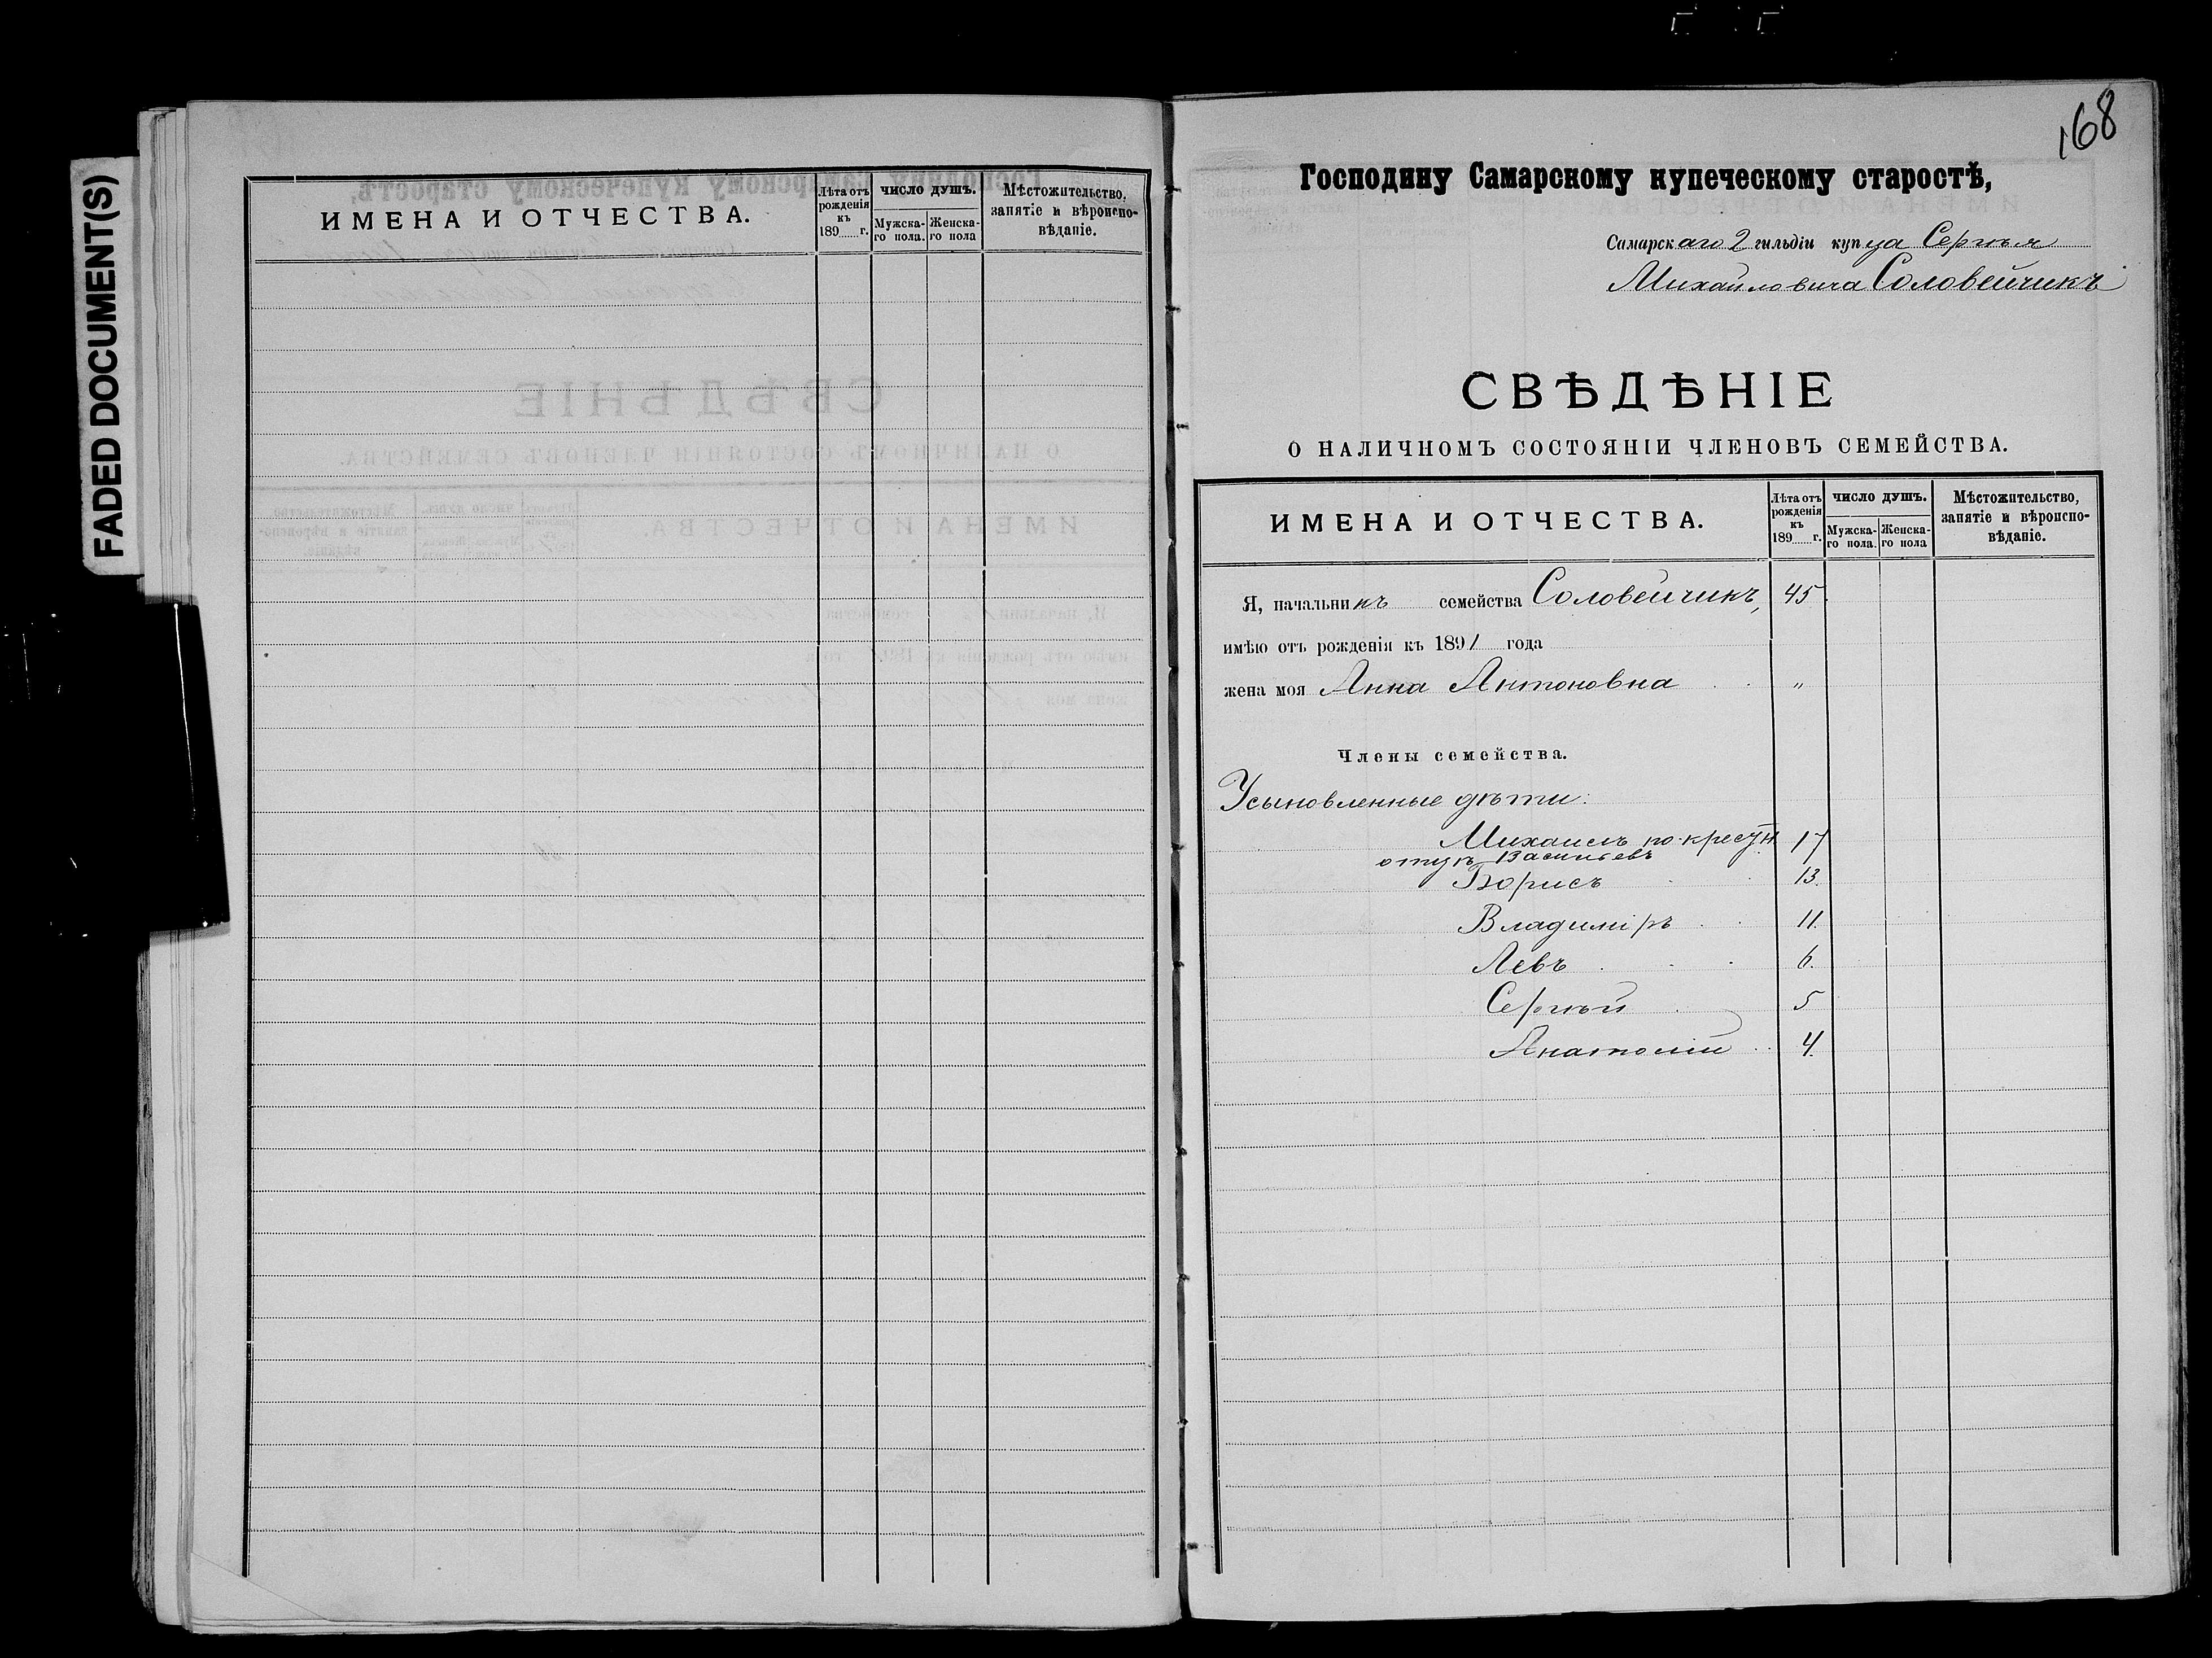 FADED DOCUMENT(S)
ИМЕНА И ОТЧЕСТВА.
Лѣта отъ рожденія къ 189 г.
ЧИСЛО ДУШЪ.
Мужска-го пола.
Женска-го пола
Мѣстожительство, занятіе и вѣроиспо-вѣданіе.
168
Господину Самарскому купеческому старостѣ,
Самарскаго 2 гильдіи купца Сергѣя
Михайловича Соловейчикъ
СВѢДѢНІЕ
О НАЛИЧНОМЪ СОСТОЯНІИ ЧЛЕНОВЪ СЕМЕЙСТВА.
ИМЕНА И ОТЧЕСТВА.
Лѣта отъ рожденія къ 189 г.
ЧИСЛО ДУШЪ.
Мужска-го пола.
Женска-го пола
Мѣстожительство, занятіе и вѣроиспо-вѣданіе.
Я, начальникъ семейства Соловейчикъ, 45
имѣю отъ рожденія къ 1891 года
жена моя Анна Антоновна "
Члены семейства.
Усыновленные дѣти:
Михаилъ по крестн 17
отцу Васильевъ
Борисъ 13.
Владиміръ 11.
Левъ 6.
Сергѣй 5
Анатолій 4.